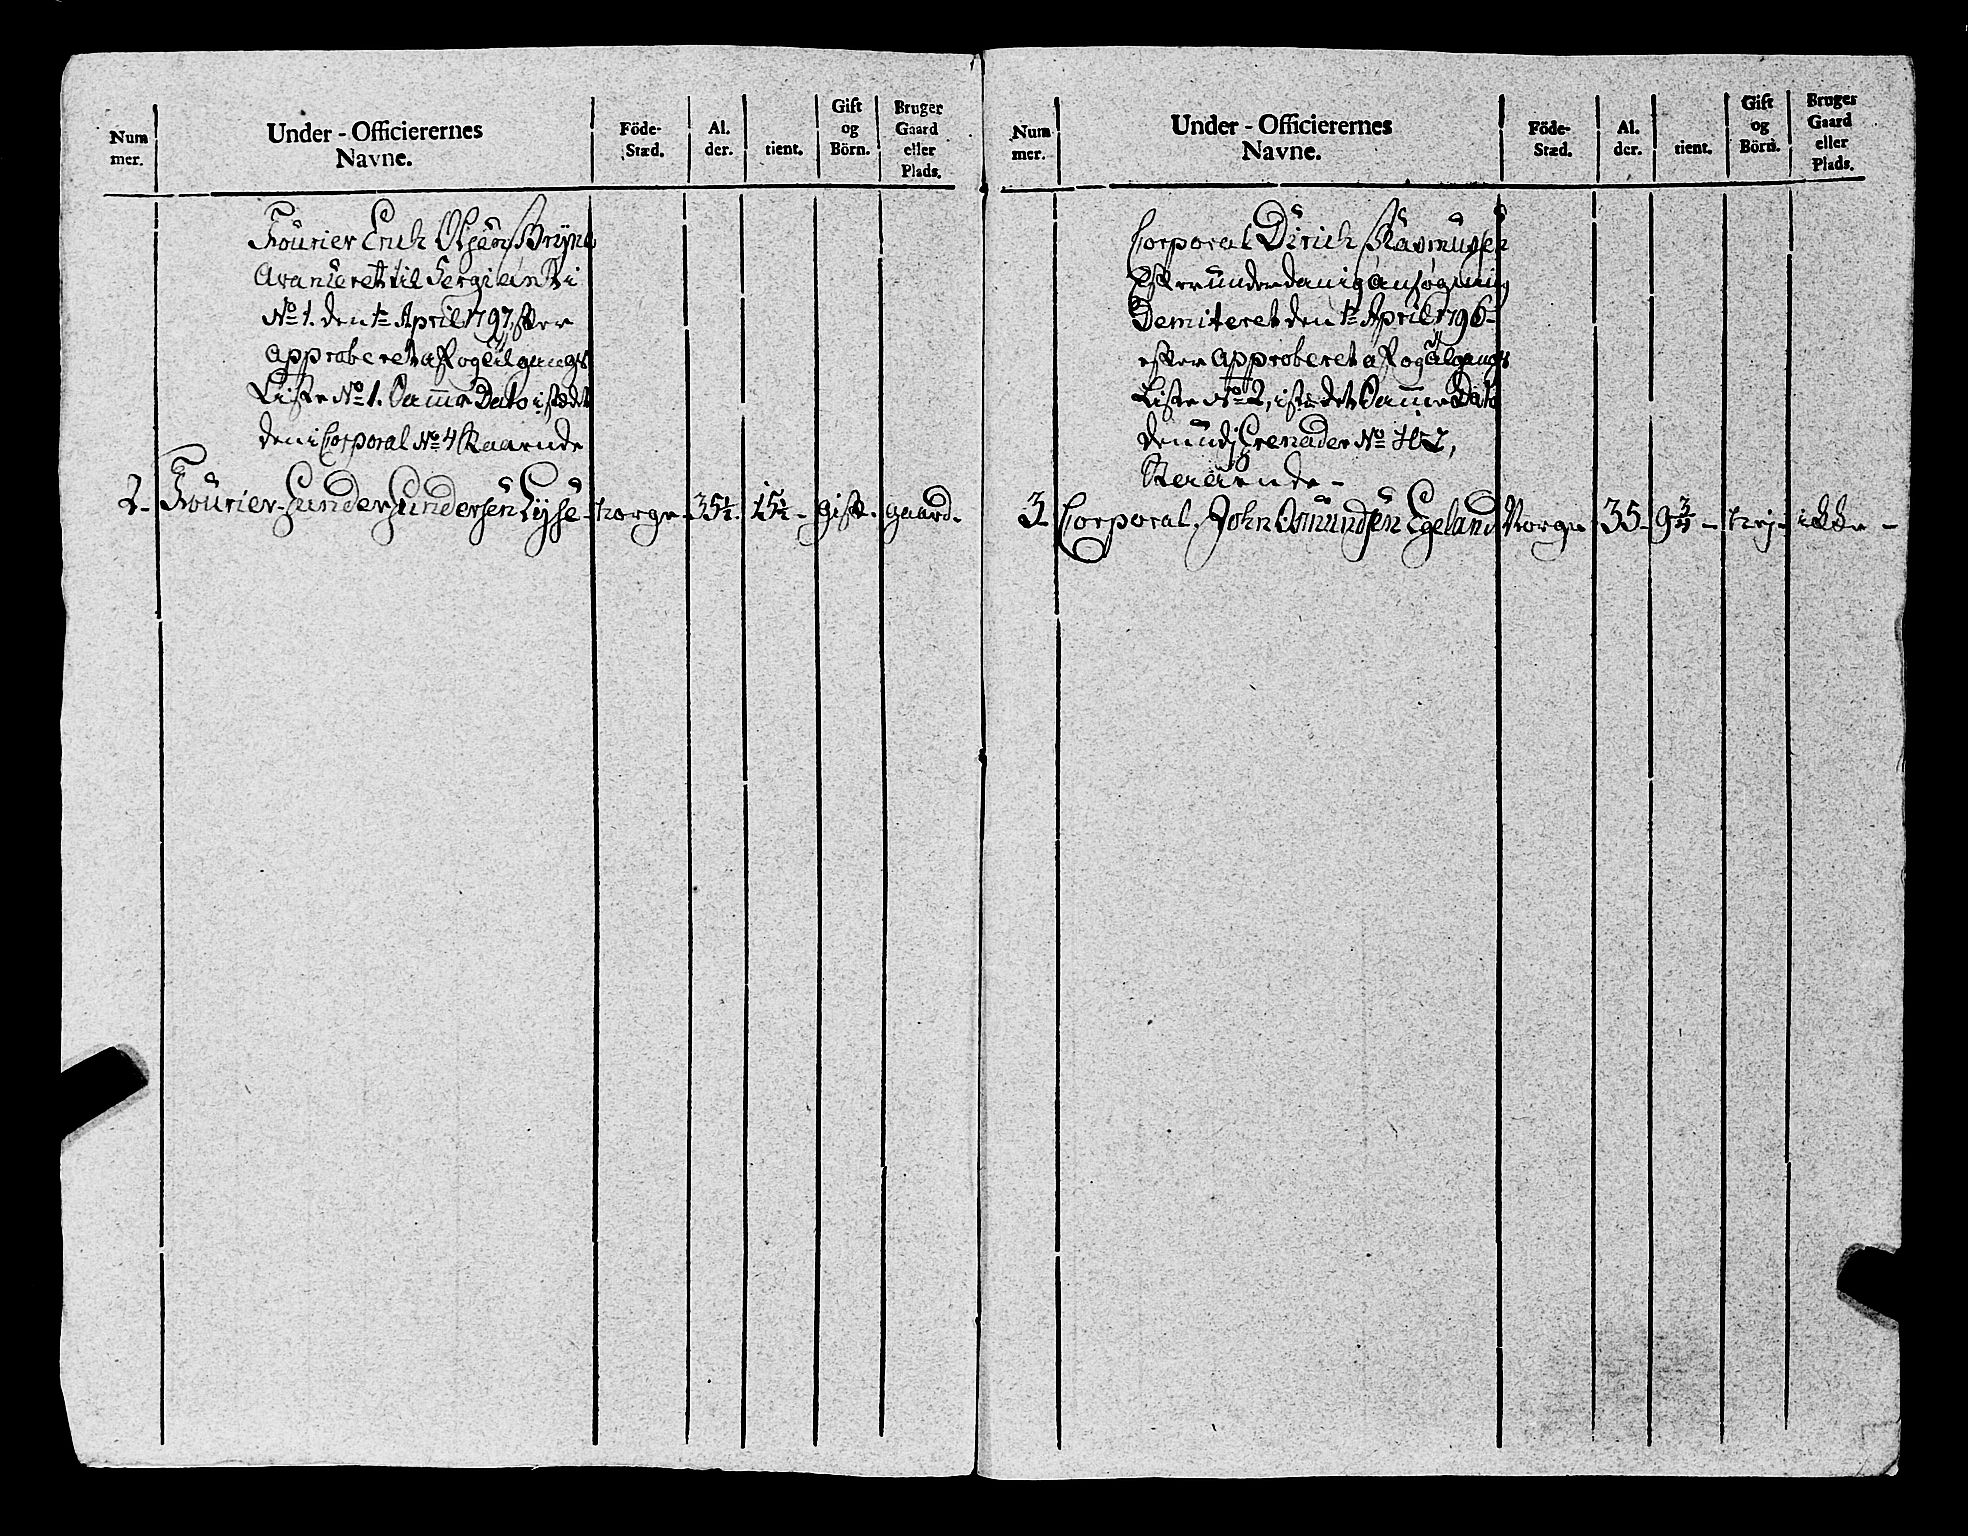 Num
mer.
Under-Officierernes
Navne.
Föde-
Stæd.
Al.
der.
tient.
Gift
og
Börn.
Bruger
Gaard
eller
Plads.
Fourier Erich Olsen Bryne
Avanceret til Sergiant i
No 1. den 1te April 1797. efter
Approberet af og tilgangs
Liste No 1. Samme Dato istædet
den i Corporal No 4 staaende
2- Fourier Gunder Gundersen Lyse - Norge - 35½. 15½ - gift. gaard.
Num
mer.
Under-Officierernes
Navne.
Föde-
Stæd.
Al.
der.
tient.
Gift
og
Börn.
Bruger
Gaard
eller
Plads.
Corporal Dirich Rasmussen
Efter underdanig ansøgning
Demiteret den 1te April 1796-
efter Approberet af og tilgangs
Liste No 2, istædet Samme Dato
den udj Grenader No
Staaende-
3 Corporal. John Osmundsen Egeland Norge 35- 9¾ - nej - ikke -